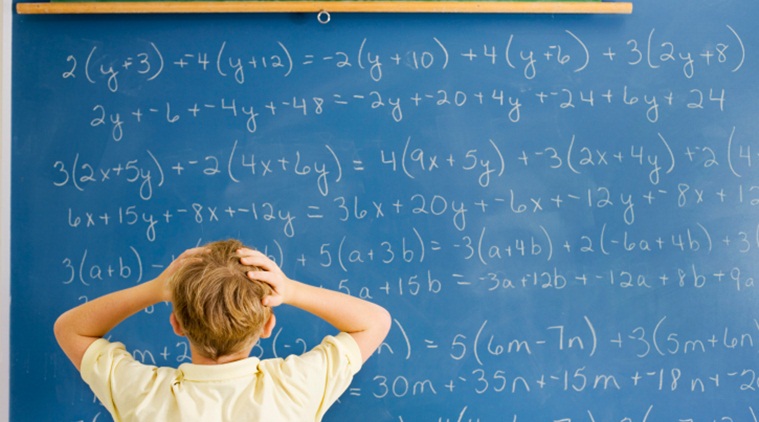 2(y+-3) +-4(y+12) = -2(y+10) +4(y+-6) + 3(2y+8)
2y+-6+-4y+-48=-2y+-20+4y+-24+6y+24
3(2x+5y)+-2(4x+6y) = 4(9x+5y) +-3(2x+4y)+-2(4
6x+15y+-8x+-12y = 36x+20y+-6x+-12y+-8x+12
3(a+b) - ) + 5(a+3b)= -3(a+4b)+2(-6a+4b)+3(
5a+15b = -3a+-12b+-12a+8b+9a
m+2 (-2 n) = 5(6m-7n)+3(5m+6n
= 30m+-35n+-15m+-18n+-2